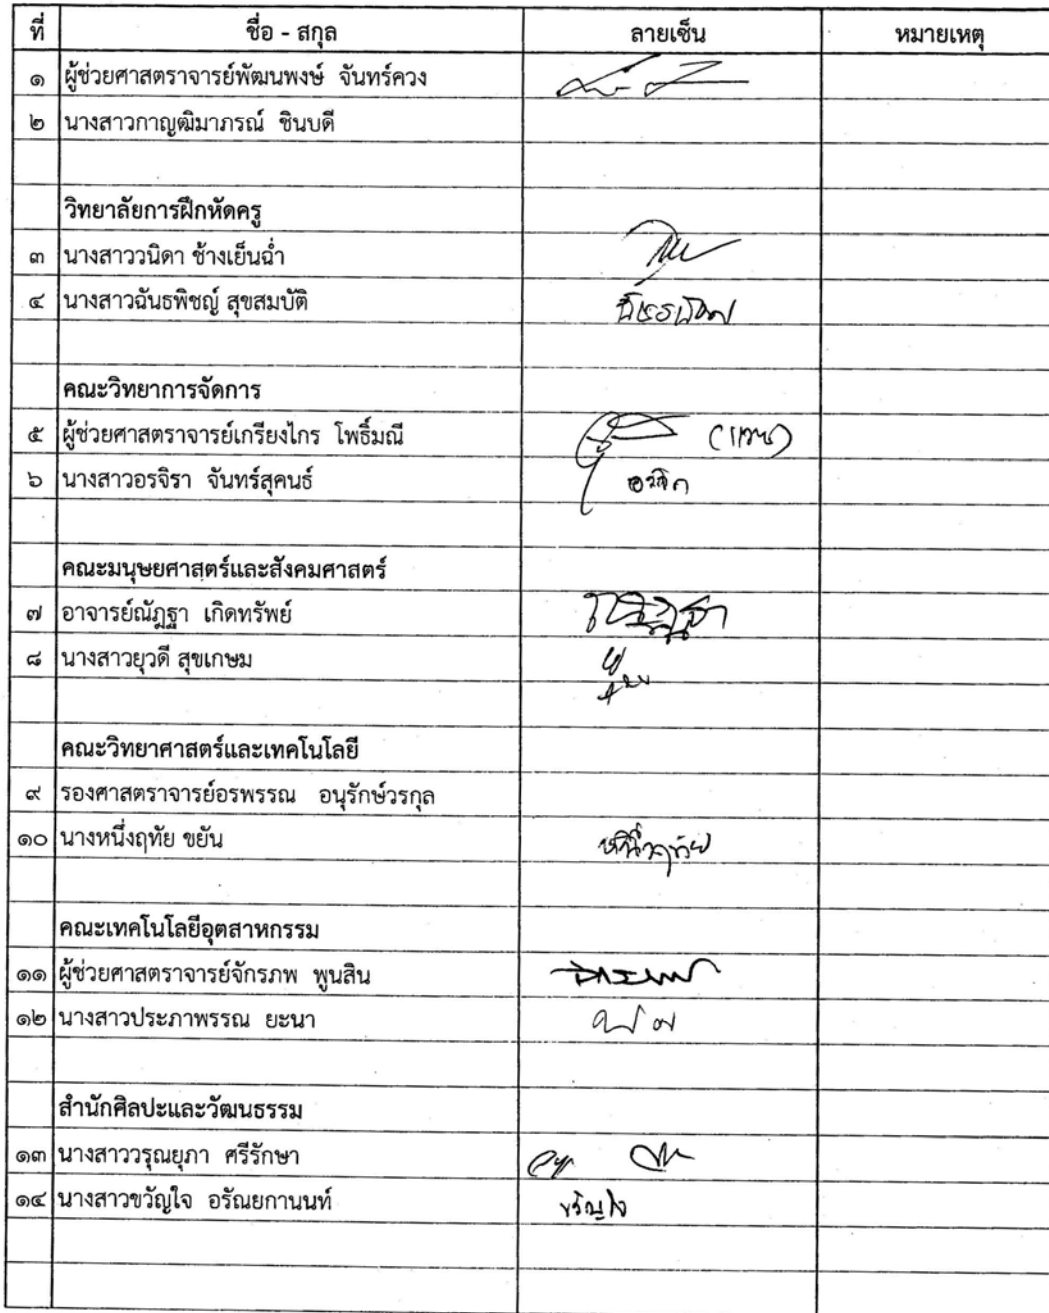 ที่ ชื่อ - สกุล ลายเซ็น หมายเหตุ
๑ ผู้ช่วยศาสตราจารย์พัฒนพงษ์ จันทร์ควง
๒ นางสาวกาญฒิมาภรณ์ ชินบดี
วิทยาลัยการฝึกหัดครู
๓ นางสาววนิดา ช้างเย็นฉ่ำ
๔ นางสาวฉันธพิชญ์ สุขสมบัติ
คณะวิทยาการจัดการ
๕ ผู้ช่วยศาสตราจารย์เกรียงไกร โพธิ์มณี (แทน)
๖ นางสาวอรจิรา จันทร์สุคนธ์
คณะมนุษยศาสตร์และสังคมศาสตร์
๗ อาจารย์ณัฎฐา เกิดทรัพย์
๘ นางสาวยุวดี สุขเกษม
คณะวิทยาศาสตร์และเทคโนโลยี
๙ รองศาสตราจารย์อรพรรณ อนุรักษ์วรกุล
๑๐ นางหนึ่งฤทัย ขยัน หนึ่งฤทัย
คณะเทคโนโลยีอุตสาหกรรม
๑๑ ผู้ช่วยศาสตราจารย์จักรภพ พูนสิน
๑๒ นางสาวประภาพรรณ ยะนา
สำนักศิลปะและวัฒนธรรม
๑๓ นางสาววรุณยุภา ศรีรักษา
๑๔ นางสาวขวัญใจ อรัณยกานนท์ ขวัญใจ